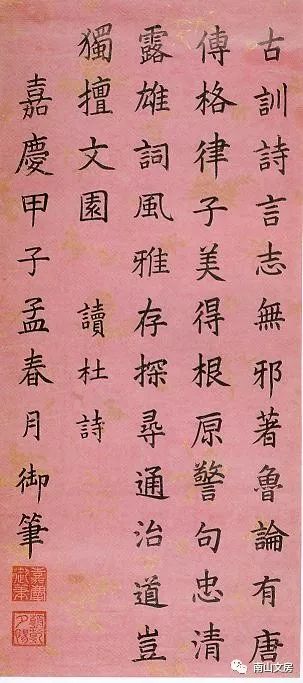 古訓詩言志無邪著魯論有唐
傳格律子美得根原警句忠清
露雄詞風雅存探尋通治道豈
獨擅文園 讀杜詩
嘉慶甲子孟春月御筆
南山文房